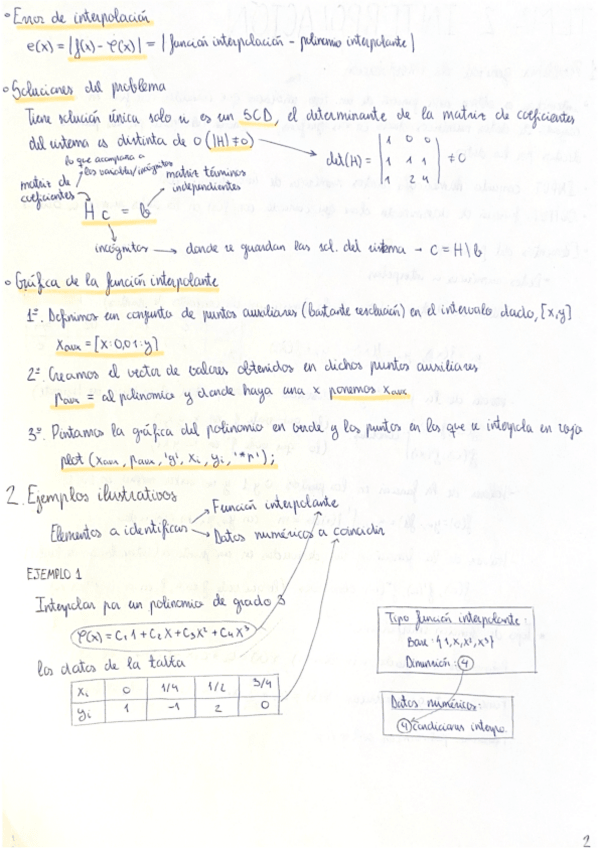 • Error de interpolación
e(x) = |f(x) - φ(x)| = | función interpolación - polinomio interpolante |
• Soluciones del problema
Tiene solución única solo si es un SCD, el determinante de la matriz de coeficientes
del sistema es distinta de 0 (|H| ≠ 0)
det(H) = | 1 0 0 | 1 1 1 | 1 2 4 | ≠ 0
lo que acompaña a
las variables/incógnitas
matriz de
coeficientes
matriz términos
independientes
H c = b
incógnitas → donde se guardan las sol. del sistema → C = H\b
• Gráfica de la función interpolante
1º. Definimos un conjunto de puntos auxiliares (bastante resolución) en el intervalo dado, [x,y]
Xaux = [x:0,01:y]
2º. Creamos el vector de valores obtenidos en dichos puntos auxiliares
Paux = al polinomio y donde haya una x ponemos Xaux
3º. Pintamos la gráfica del polinomio en verde y los puntos en los que se interpola en rojo
plot (Xaux, Paux, 'g', xi, yi, '*r');
2. Ejemplos ilustrativos
Elementos a identificar
Función interpolante
Datos numéricos a coincidir
EJEMPLO 1
Interpolar por un polinomio de grado 3
φ(x) = C₁1 + C₂X + C₃X² + C₄X³
los datos de la tabla
Xi 0 1/4 1/2 3/4
yi 1 -1 2 0
Tipo función interpolante:
Base: {1, x, x², x³}
Dimensión: 4
Datos numéricos:
4 condiciones interpo.
2